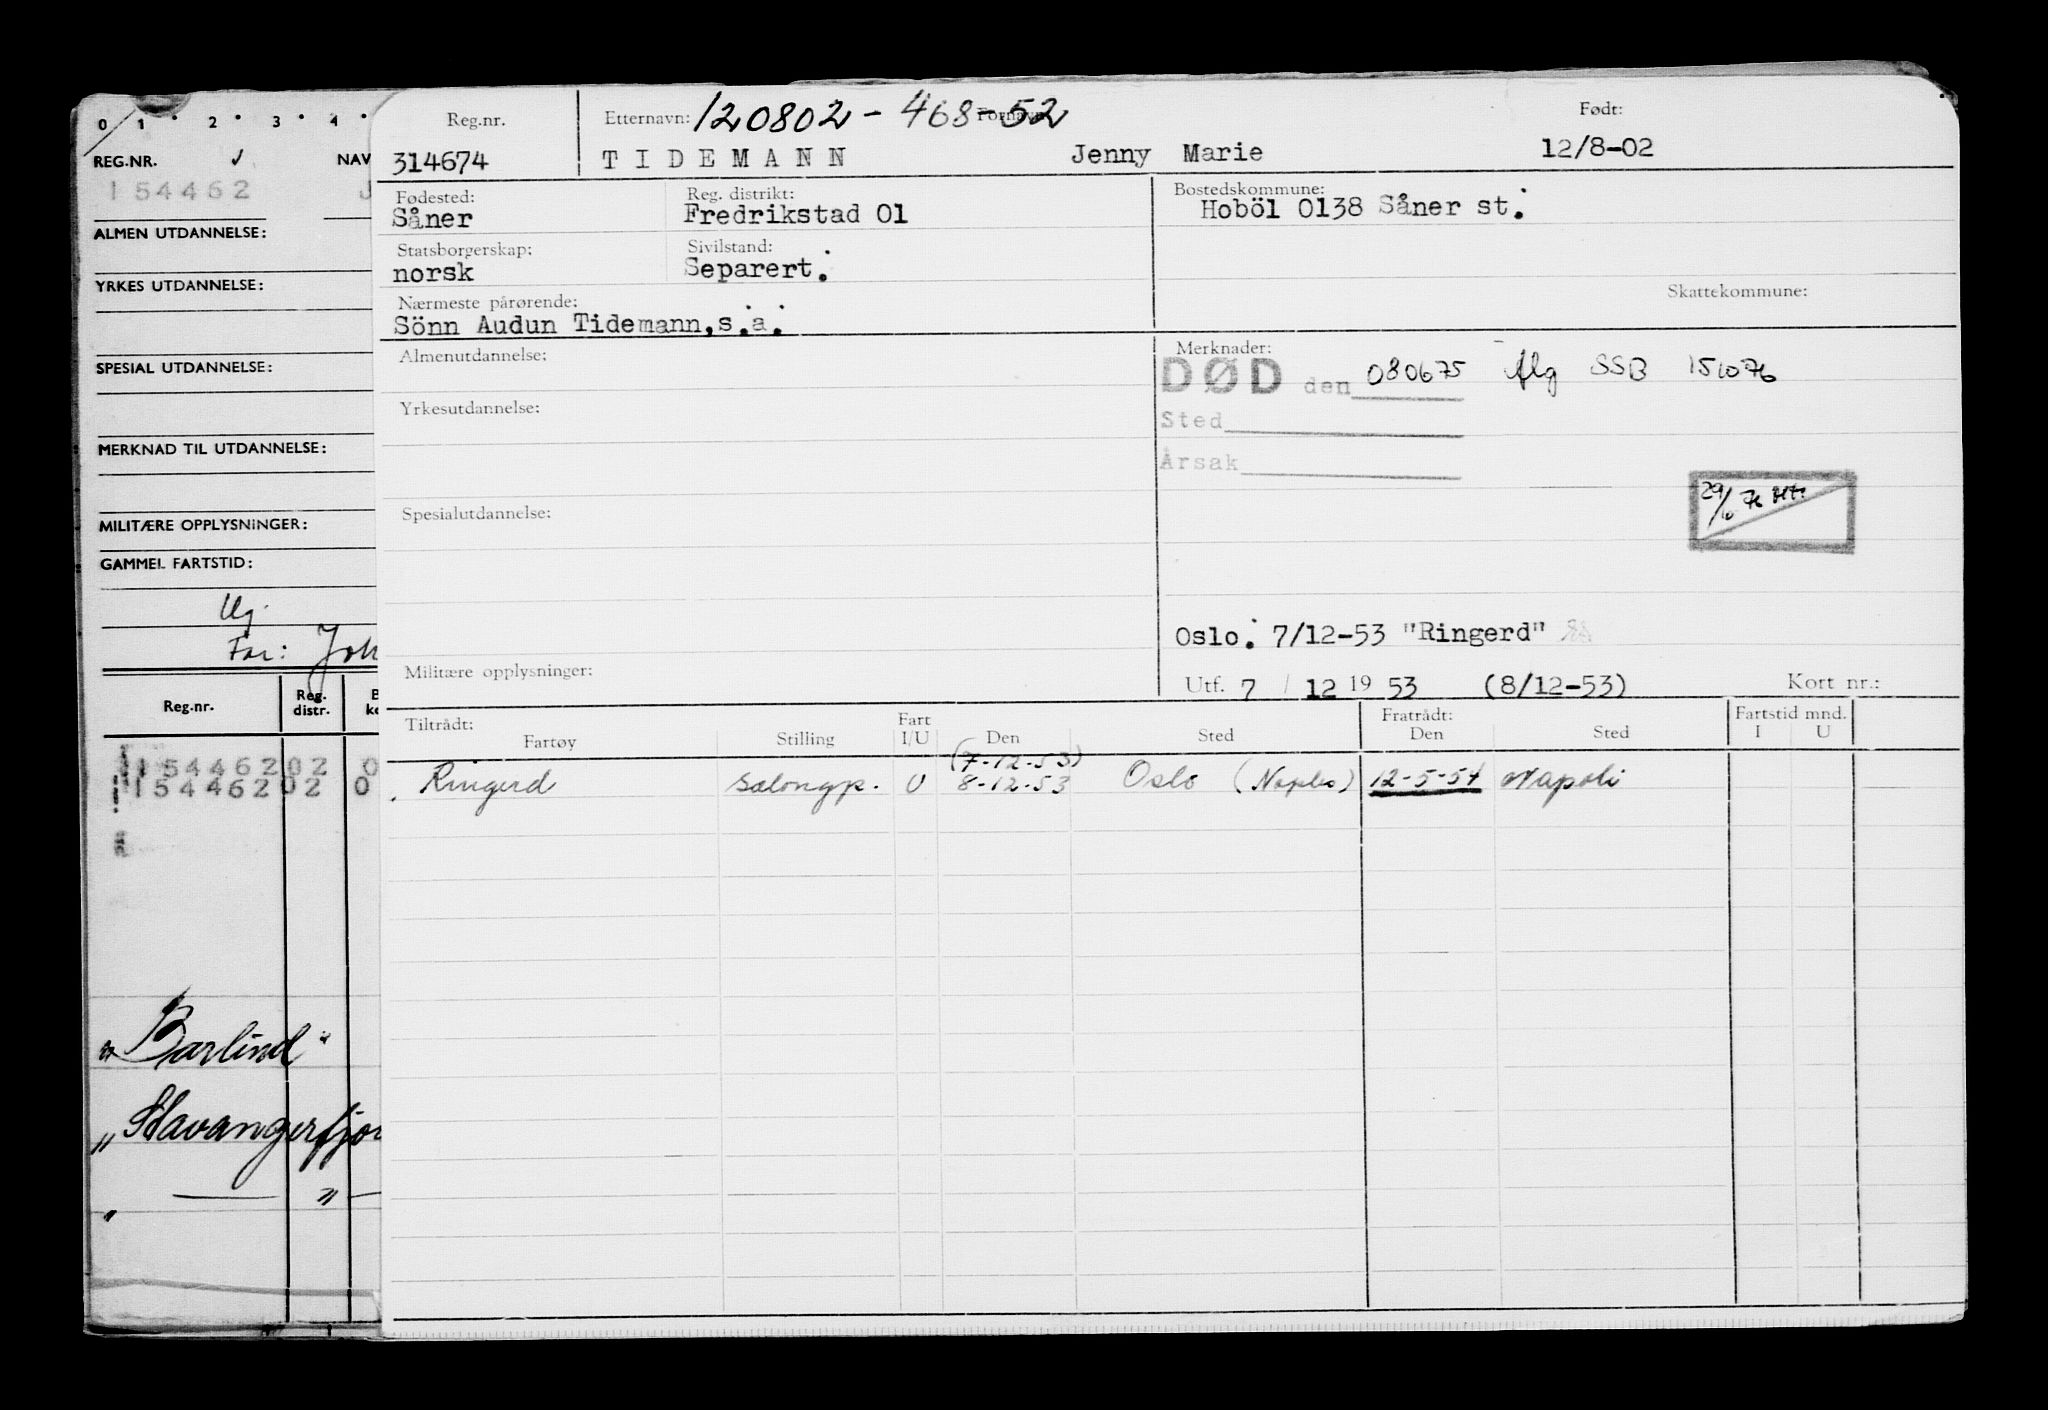 0 1 2 3 4
REG.NR. NAV
154462 J
ALMEN UTDANNELSE:
YRKES UTDANNELSE:
SPESIAL UTDANNELSE:
MERKNAD TIL UTDANNELSE:
MILITÆRE OPPLYSNINGER:
GAMMEL FARTSTID:
Ug.
Far: Joh
Reg.nr. Reg. distr. B ke
154462 02 0
154462 02 0
"Barlind"
"Stavangerfjor
" — " —
Reg.nr. Etternavn: 120802-468-52 Fornavn: Født:
314674 TIDEMANN Jenny Marie 12/8-02
Fødested: Reg. distrikt: Bostedskommune:
Såner Fredrikstad 01 Hoböl 0138 Såner st:
Statsborgerskap: Sivilstand:
norsk Separert:
Nærmeste pårørende: Skattekommune:
Sönn Audun Tidemann, s:a:
Almenutdannelse: Merknader:
DØD den 080675 flg SSB 151076
Yrkesutdannelse: Sted
Årsak
Spesialutdannelse: 29/10 76
Oslo: 7/12-53 "Ringerd"
Militære opplysninger: Utf. 7 / 12 19 53 (8/12-53) Kort nr.:
Tiltrådt: Fart Fratrådt: Fartstid mnd.
Fartøy Stilling I/U Den Sted Den Sted I U
(7-12-53)
Ringerd salongp. U 8-12-53 Oslo (Naples) 12-5-54 Napoli